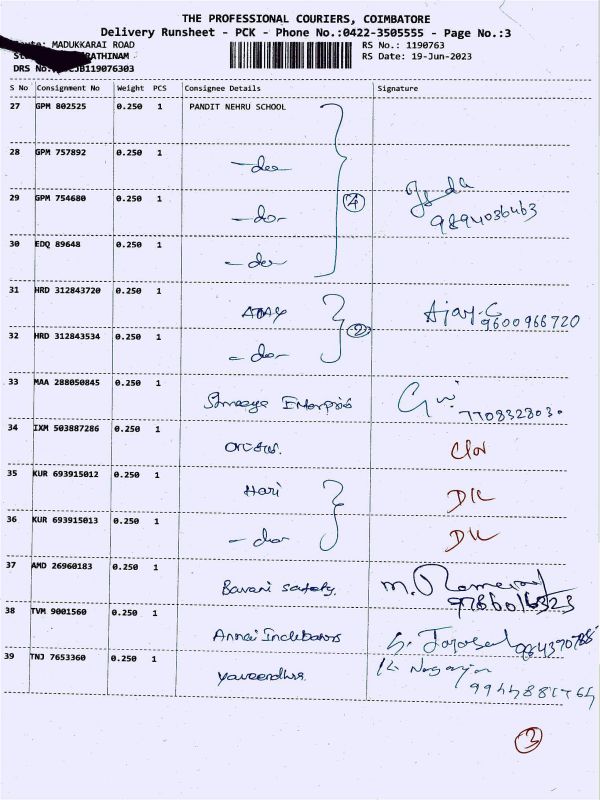 THE PROFESSIONAL COURIERS, COIMBATORE
Delivery Runsheet - PCK - Phone No.:0422-3505555 - Page No.:3
MADUKKARAI ROAD RS No.: 1190763
RATHINAM RS Date: 19-Jun-2023
DRS No. JB119076303
S No Consignment No Weight PCS Consignee Details Signature
27 GPM 802525 0.250 1 PANDIT NEHRU SCHOOL
28 GPM 757892 0.250 1 -do-
29 GPM 754680 0.250 1 -do- 4 9894036463
30 EDQ 89648 0.250 1 -do-
31 HRD 312843720 0.250 1 AJAY 2 Ajay.C 9600966720
32 HRD 312843534 0.250 1 -do-
33 MAA 288050845 0.250 1 Shreeya Enterpris 7708328030
34 IXM 503887286 0.250 1
35 KUR 693915012 0.250 1 Hari DIL
36 KUR 693915013 0.250 1 -do- DIL
37 AMD 26960183 0.250 1 Bavani safety. 9786016323
38 TVM 9001560 0.250 1 Annai
39 TNJ 7653360 0.250 1 K. Nagaraj
3